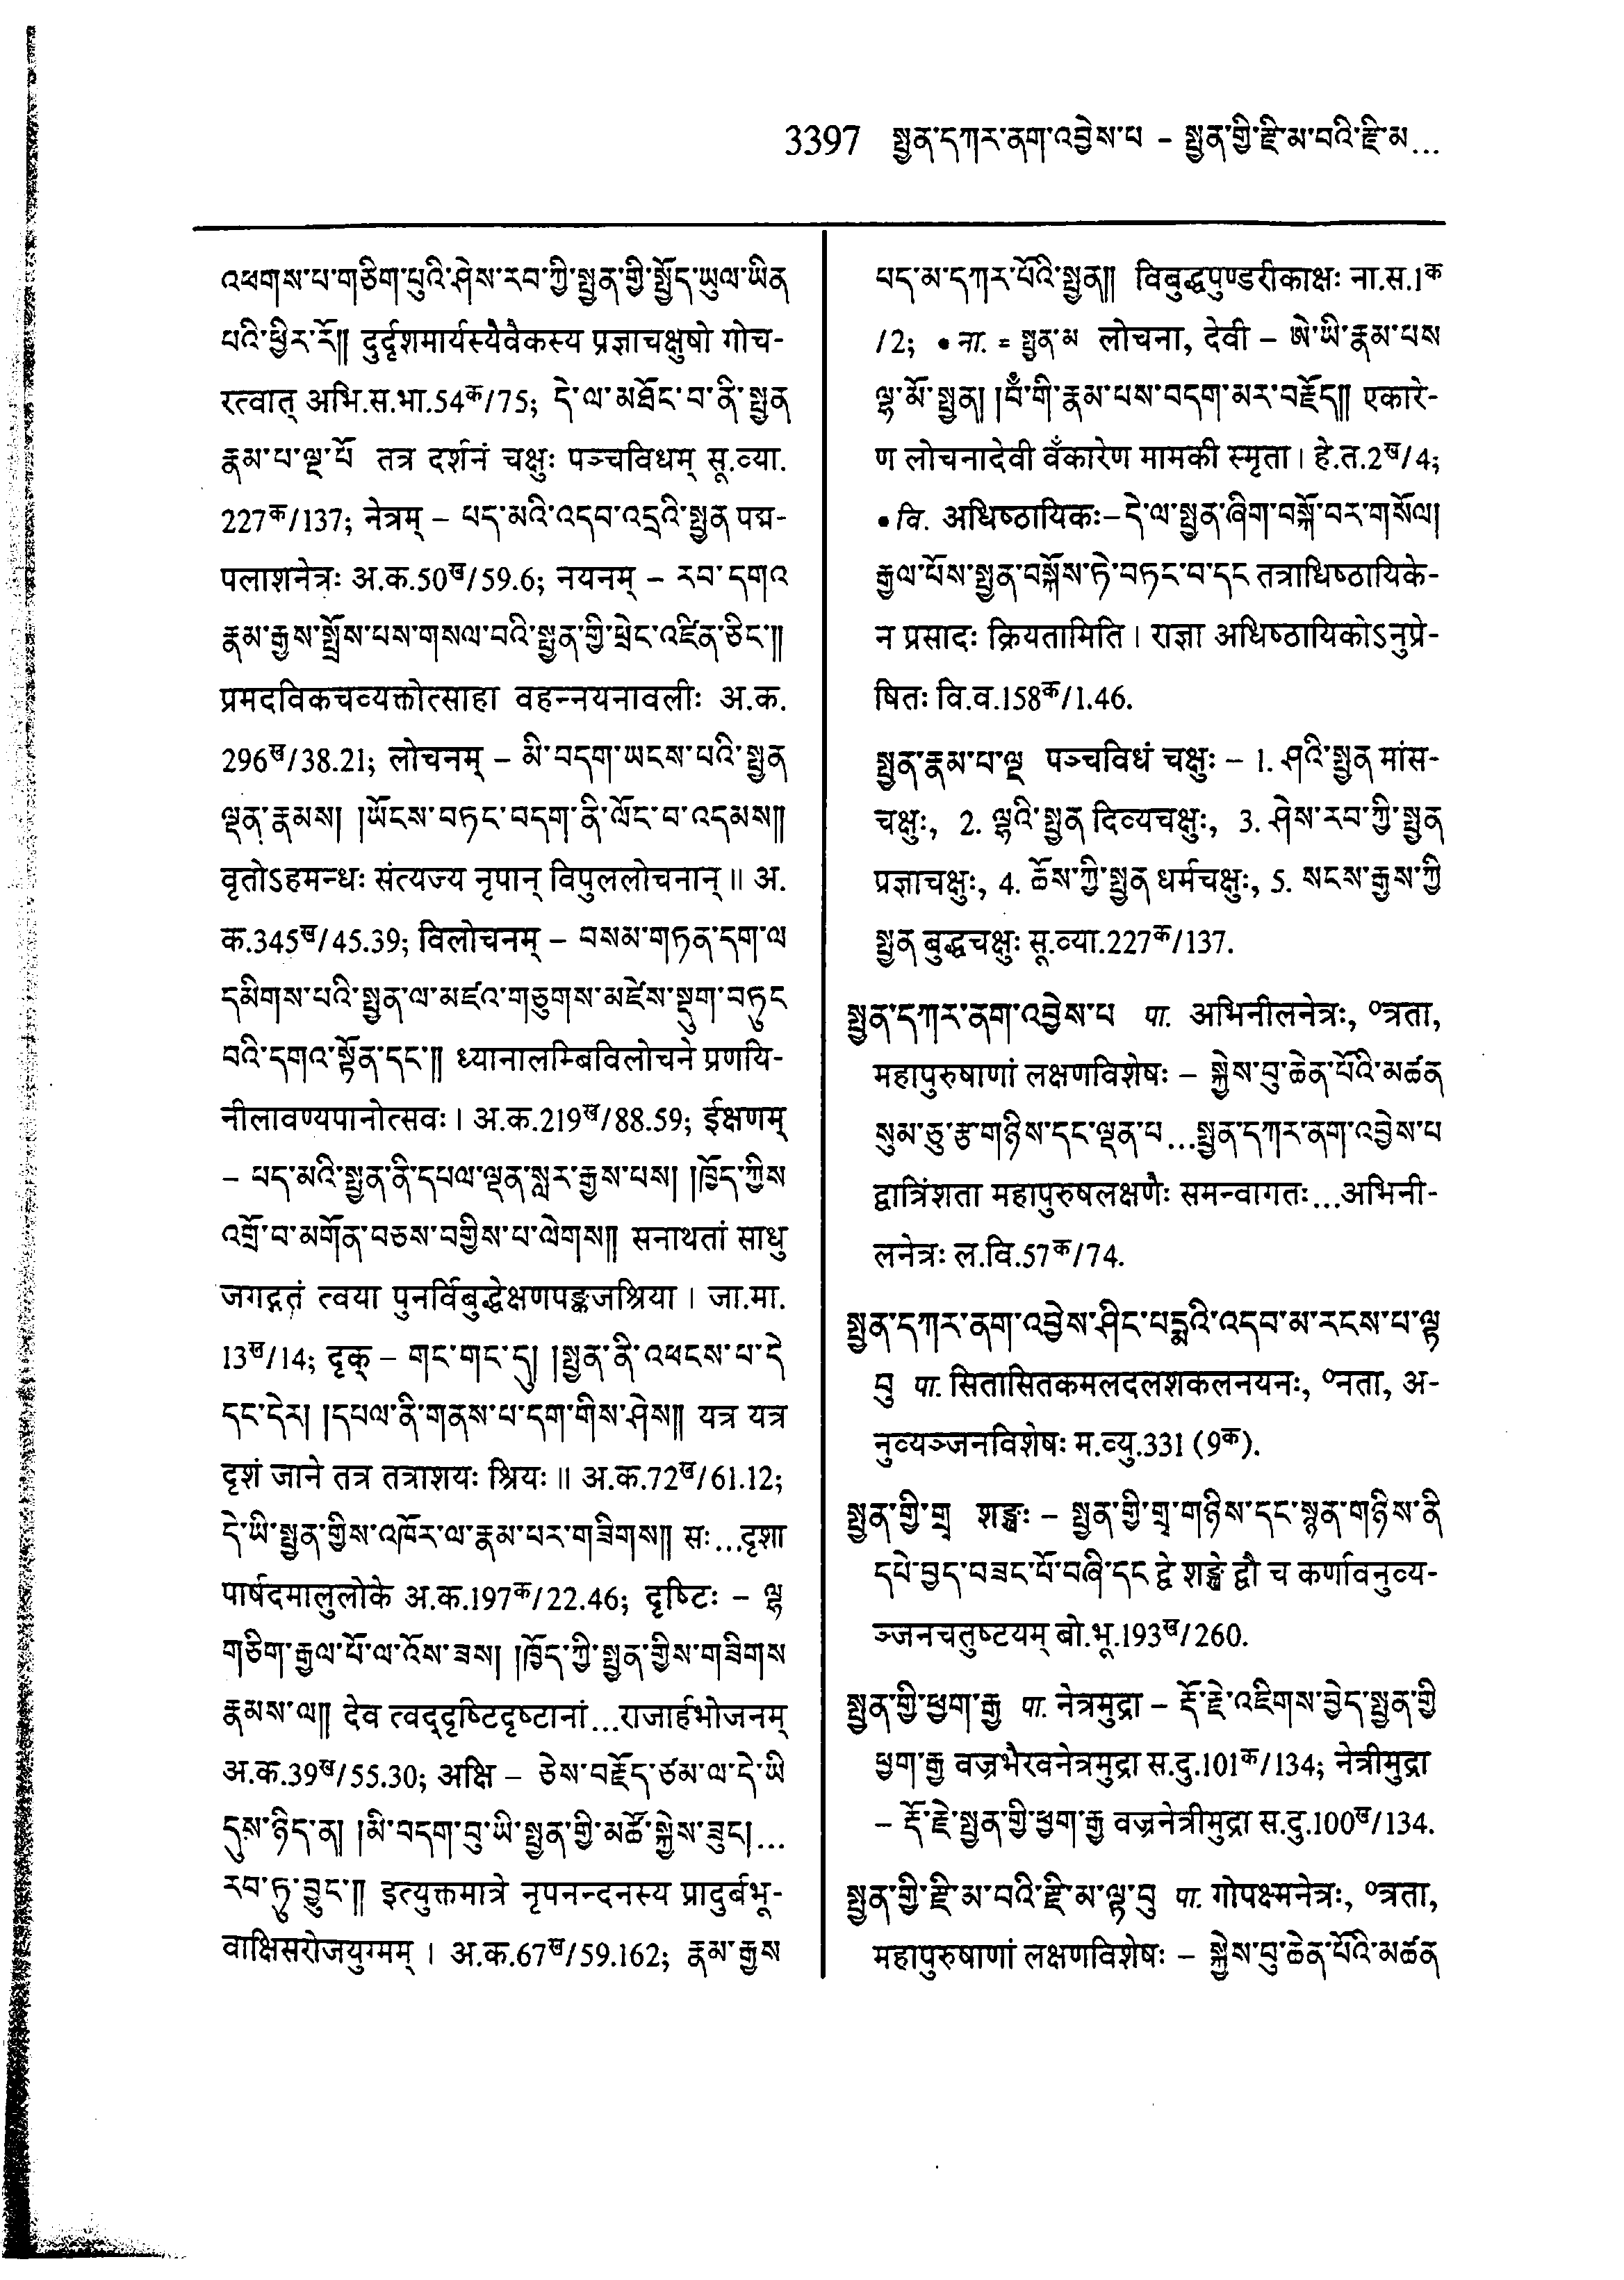 3397 སྤྱན་དཀར་ནག་འབྱེས་པ – སྤྱན་གྱི་རྫི་མ་བའི་རྫི་མ...
འཕགས་པ་གཅིག་པུའི་ཤེས་རབ་ཀྱི་སྤྱན་གྱི་སྤྱོད་ཡུལ་ཡིན
པའི་ཕྱིར་རོ༎ दुर्दृशमार्यस्यैवैकस्य प्रज्ञाचक्षुषो गोच-
रत्वात् अभि.स.भा.54क/75; དེ་ལ་མཐོང་བ་ནི་སྤྱན
རྣམ་པ་ལྔ་པོ तत्र दर्शनं चक्षुः पञ्चविधम् सू.व्या.
227क/137; नेत्रम् – པད་མའི་འདབ་འདྲའི་སྤྱན पद्म-
पलाशनेत्रः अ.क.50ख/59.6; नयनम् – རབ་དགའ
རྣམ་རྒྱས་སྤྲོས་པས་གསལ་བའི་སྤྱན་གྱི་ཕྲེང་འཛིན་ཅིང་༎
प्रमदविकचव्यक्तोत्साहा वहन्नयनावलीः अ.क.
296ख/38.21; लोचनम् – མི་བདག་ཡངས་པའི་སྤྱན
ལྡན་རྣམས། །ཡོངས་བཏང་བདག་ནི་ལོང་བ་འདམས༎
वृतोऽहमन्धः संत्यज्य नृपान् विपुललोचनान् ॥ अ.
क.345ख/45.39; विलोचनम् – བསམ་གཏན་དག་ལ
དམིགས་པའི་སྤྱན་ལ་མཛའ་གཅུགས་མཛེས་སྡུག་བཏུང
བའི་དགའ་སྟོན་དང་༎ ध्यानालम्बिविलोचने प्रणयि-
नीलावण्यपानोत्सवः । अ.क.219ख/88.59; ईक्षणम्
– པད་མའི་སྤྱན་ནི་དཔལ་ལྡན་སླར་རྒྱས་པས། །ཁྱོད་ཀྱིས
འགྲོ་བ་མགོན་བཅས་བགྱིས་པ་ལེགས༎ सनाथतां साधु
जगद्गतं त्वया पुनर्विबुद्धेक्षणपङ्कजश्रिया । जा.मा.
13ख/14; दृक् – གང་གང་དུ། །སྤྱན་ནི་འཕངས་པ་དེ
དང་དེར། །དཔལ་ནི་གནས་པ་དག་གིས་ཤེས༎ यत्र यत्र
दृशं जाने तत्र तत्राशयः श्रियः ॥ अ.क.72ख/61.12;
དེ་ཡི་སྤྱན་གྱིས་འཁོར་ལ་རྣམ་པར་གཟིགས༎ सः...दृशा
पार्षदमालुलोके अ.क.197क/22.46; दृष्टिः – ལྷ
གཅིག་རྒྱལ་པོ་ལ་འོས་ཟས། །ཁྱོད་ཀྱི་སྤྱན་གྱིས་གཟིགས
རྣམས་ལ༎ देव त्वद्दृष्टिदृष्टानां...राजार्हभोजनम्
अ.क.39ख/55.30; अक्षि – ཅེས་བརྗོད་ཙམ་ལ་དེ་ཡི
དུས་ཉིད་ན། །མི་བདག་བུ་ཡི་སྤྱན་གྱི་མཚོ་སྐྱེས་ཟུང།...
རབ་ཏུ་བྱུང་༎ इत्युक्तमात्रे नृपनन्दनस्य प्रादुर्बभू-
वाक्षिसरोजयुग्मम् । अ.क.67ख/59.162; རྣམ་རྒྱས
པད་མ་དཀར་པོའི་སྤྱན༎ विबुद्धपुण्डरीकाक्षः ना.स.1क
/2; • ना. = སྤྱན་མ लोचना, देवी – ཨེ་ཡི་རྣམ་པས
ལྷ་མོ་སྤྱན། །བཾ་གི་རྣམ་པས་བདག་མར་བརྗོད༎ एकारे-
ण लोचनादेवी वँकारेण मामकी स्मृता । हे.त.2ख/4;
• वि. अधिष्ठायिकः–དེ་ལ་སྤྱན་ཞིག་བསྐོ་བར་གསོལ།
རྒྱལ་པོས་སྤྱན་བསྐོས་ཏེ་བཏང་བ་དང तत्राधिष्ठायिके-
न प्रसादः क्रियतामिति । राज्ञा अधिष्ठायिकोऽनुप्रे-
षितः वि.व.158क/1.46.
སྤྱན་རྣམ་པ་ལྔ पञ्चविधं चक्षुः – 1. ཤའི་སྤྱན मांस-
चक्षुः, 2. ལྷའི་སྤྱན दिव्यचक्षुः, 3. ཤེས་རབ་ཀྱི་སྤྱན
प्रज्ञाचक्षुः, 4. ཆོས་ཀྱི་སྤྱན धर्मचक्षुः, 5. སངས་རྒྱས་ཀྱི
སྤྱན बुद्धचक्षुः सू.व्या.227क/137.
སྤྱན་དཀར་ནག་འབྱེས་པ पा. अभिनीलनेत्रः, ०त्रता,
महापुरुषाणां लक्षणविशेषः – སྐྱེས་བུ་ཆེན་པོའི་མཚན
སུམ་ཅུ་རྩ་གཉིས་དང་ལྡན་པ...སྤྱན་དཀར་ནག་འབྱེས་པ
द्वात्रिंशता महापुरुषलक्षणैः समन्वागतः...अभिनी-
लनेत्रः ल.वि.57क/74.
སྤྱན་དཀར་ནག་འབྱེས་ཤིང་པདྨའི་འདབ་མ་རངས་པ་ལྟ
བུ पा. सितासितकमलदलशकलनयनः, ०नता, अ-
नुव्यञ्जनविशेषः म.व्यु.331 (9क).
སྤྱན་གྱི་གྲྭ शङ्खः – སྤྱན་གྱི་གྲྭ་གཉིས་དང་སྙན་གཉིས་ནི
དཔེ་བྱད་བཟང་པོ་བཞི་དང द्वे शङ्खे द्वौ च कर्णावनुव्य-
ञ्जनचतुष्टयम् बो.भू.193ख/260.
སྤྱན་གྱི་ཕྱག་རྒྱ पा. नेत्रमुद्रा – རྡོ་རྗེ་འཇིགས་བྱེད་སྤྱན་གྱི
ཕྱག་རྒྱ वज्रभैरवनेत्रमुद्रा स.दु.101क/134; नेत्रीमुद्रा
– རྡོ་རྗེ་སྤྱན་གྱི་ཕྱག་རྒྱ वज्रनेत्रीमुद्रा स.दु.100ख/134.
སྤྱན་གྱི་རྫི་མ་བའི་རྫི་མ་ལྟ་བུ पा. गोपक्ष्मनेत्रः, ०त्रता,
महापुरुषाणां लक्षणविशेषः – སྐྱེས་བུ་ཆེན་པོའི་མཚན